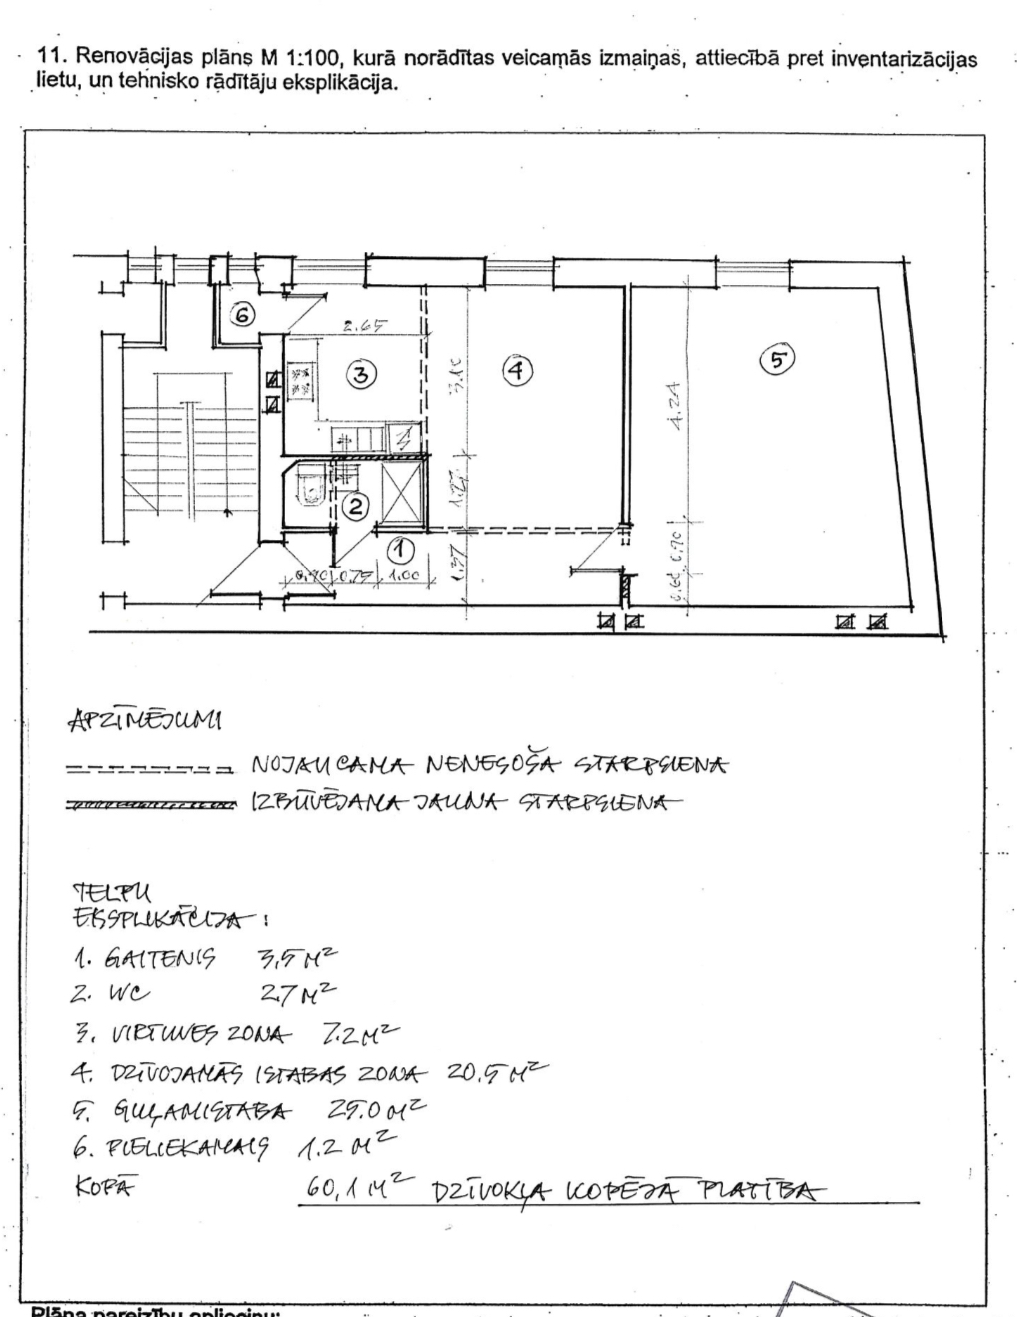 11. Renovācijas plāns M 1:100, kurā norādītas veicamās izmaiņas, attiecībā pret inventarizācijas
lietu, un tehnisko rādītāju eksplikācija.
6
2.65
3
4
5
3.10
4.24
1.27
2
1
1.37
0.90 0.75 1.00
0.70
0.60
APZĪMĒJUMI
NOJAUCAMA NENESOŠA STARPSIENA
IZBŪVĒJAMA JAUNA STARPSIENA
TELPU
EKSPLIKĀCIJA:
1. GAITENIS 3,5 M²
2. WC 2.7 M²
3. VIRTUVES ZONA 7.2 M²
4. DZĪVOJAMĀS ISTABAS ZONA 20.5 M²
5. GUĻAMISTABA 25.0 M²
6. PIELIEKAMAIS 1.2 M²
KOPĀ 60,1 M² DZĪVOKĻA KOPĒJĀ PLATĪBA
Plāna pareizību apliecinu: